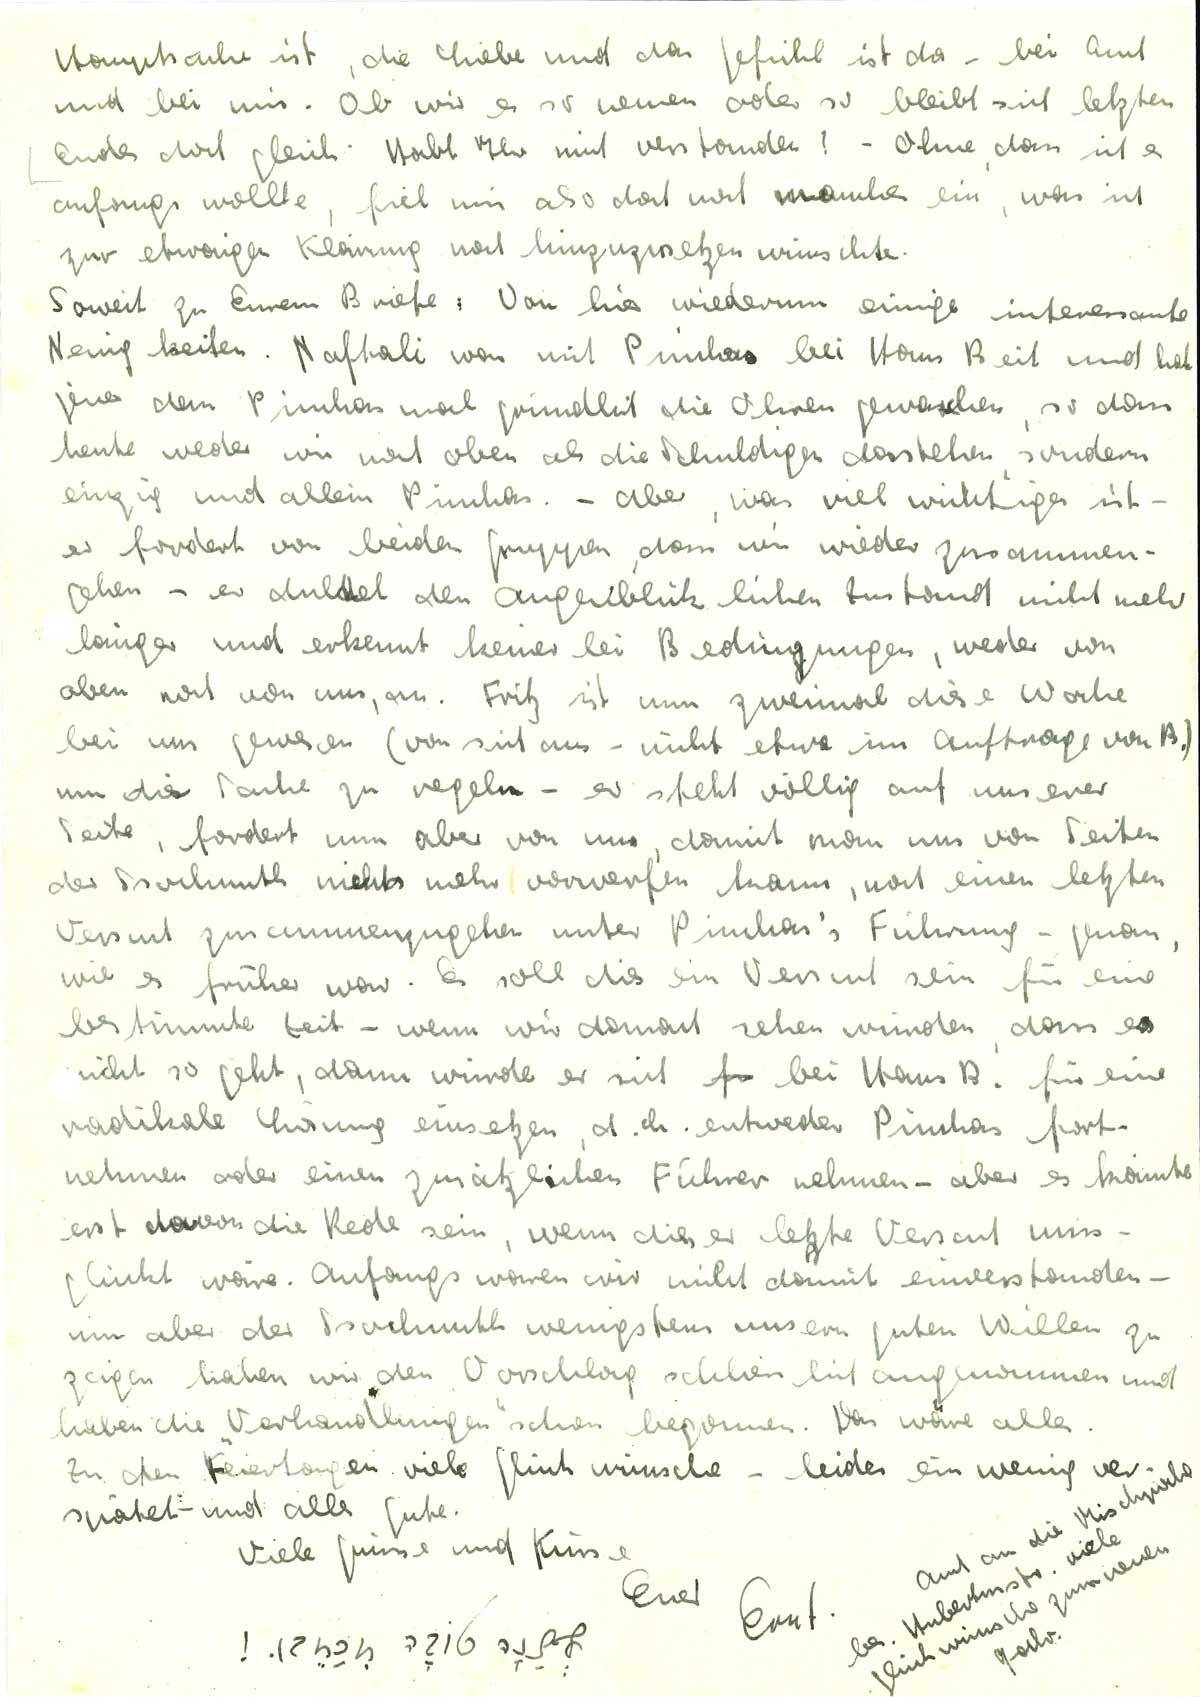 Hauptsache ist, die Liebe und das Gefühl ist da – bei Euch
und bei mir. Ob wir es so nennen oder so bleibt sich letzten
Endes doch gleich. Habt Ihr mich verstanden? – Ohne, dass ich es
anfangs wollte, fiel mir also doch noch manches ein, was ich
zur etwaigen Klärung noch hinzuzusetzen wünschte.
Soweit zu Eurem Briefe: Von hier wiederum einige interessante
Neuigkeiten. Naftali war mit Pinchas bei Hans Beit und hat
jener dem Pinchas mal gründlich die Ohren gewaschen, so dass
heute weder wir noch oben als die Schuldigen dastehen, sondern
einzig und allein Pinchas. – Aber, was viel wichtiger ist –
er fordert von beiden Gruppen, dass wir wieder zusammen-
gehen – er duldet den augenblicklichen Zustand nicht mehr
länger und erkennt keinerlei Bedingungen, weder von
oben noch von uns, an. Fritz ist nun zweimal diese Woche
bei uns gewesen (von sich aus – nicht etwa im Auftrage von B.)
um die Sache zu regeln – er steht völlig auf unserer
Seite, fordert nun aber von uns, damit man uns von Seiten
der Sochnuth nichts mehr vorwerfen kann, noch einen letzten
Versuch zusammenzugehen unter Pinchas's Führung – genau,
wie es früher war. Es soll dies ein Versuch sein für eine
bestimmte Zeit – wenn wir danach sehen würden, dass es
nicht so geht, dann würde er sich bei Hans B. für eine
radikale Lösung einsetzen, d.h. entweder Pinchas fort-
nehmen oder einen zusätzlichen Führer nehmen – aber es könnte
erst davon die Rede sein, wenn dieser letzte Versuch miss-
glückt wäre. Anfangs waren wir nicht damit einverstanden –
um aber der Sochnuth wenigstens unsern guten Willen zu
zeigen haben wir den Vorschlag schliesslich angenommen und
haben die „Verhandlungen" schon begonnen. Das wäre alles.
Zu den Feiertagen viele Glückwünsche – leider ein wenig ver-
spätet – und alles Gute.
Viele Grüsse und Küsse
Euer Ernst.
Auch an die Mischpoche
bes. Hubertusstr. viele
Glückwünsche zum neuen
Jahr.
לשנה טובה !